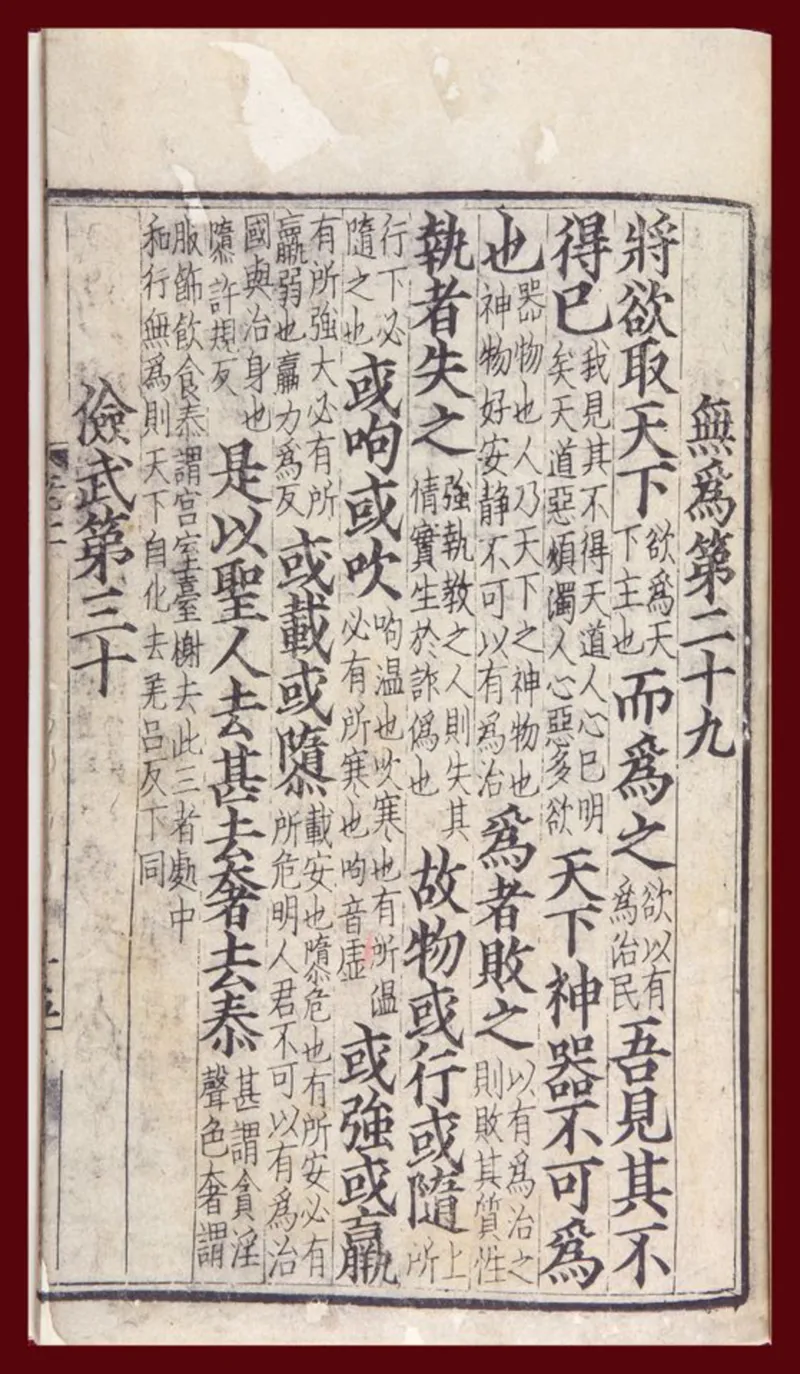 無爲第二十九
將欲取天下欲爲天下主也而爲之欲以有爲治民吾見其不
得已我見其不得天道人心已明矣天道惡煩濁人心惡多欲天下神器不可爲
也器物也人乃天下之神物也神物好安静不可以有爲治爲者敗之以有爲治之則敗其質性
執者失之強執教之人則失其情實生於詐僞也故物或行或隨上所
行下必隨之也或呴或吹呴温也吹寒也有所温必有所寒也呴音虛或強或羸
有所強大必有所羸弱也羸力爲反或載或隳載安也隳危也有所安必有所危明人君不可以有爲治
國與治身也隳許規反是以聖人去甚去奢去泰甚謂貪淫聲色奢謂
服飾飲食泰謂宫室臺榭去此三者處中和行無爲則天下自化去羌呂反下同
儉武第三十